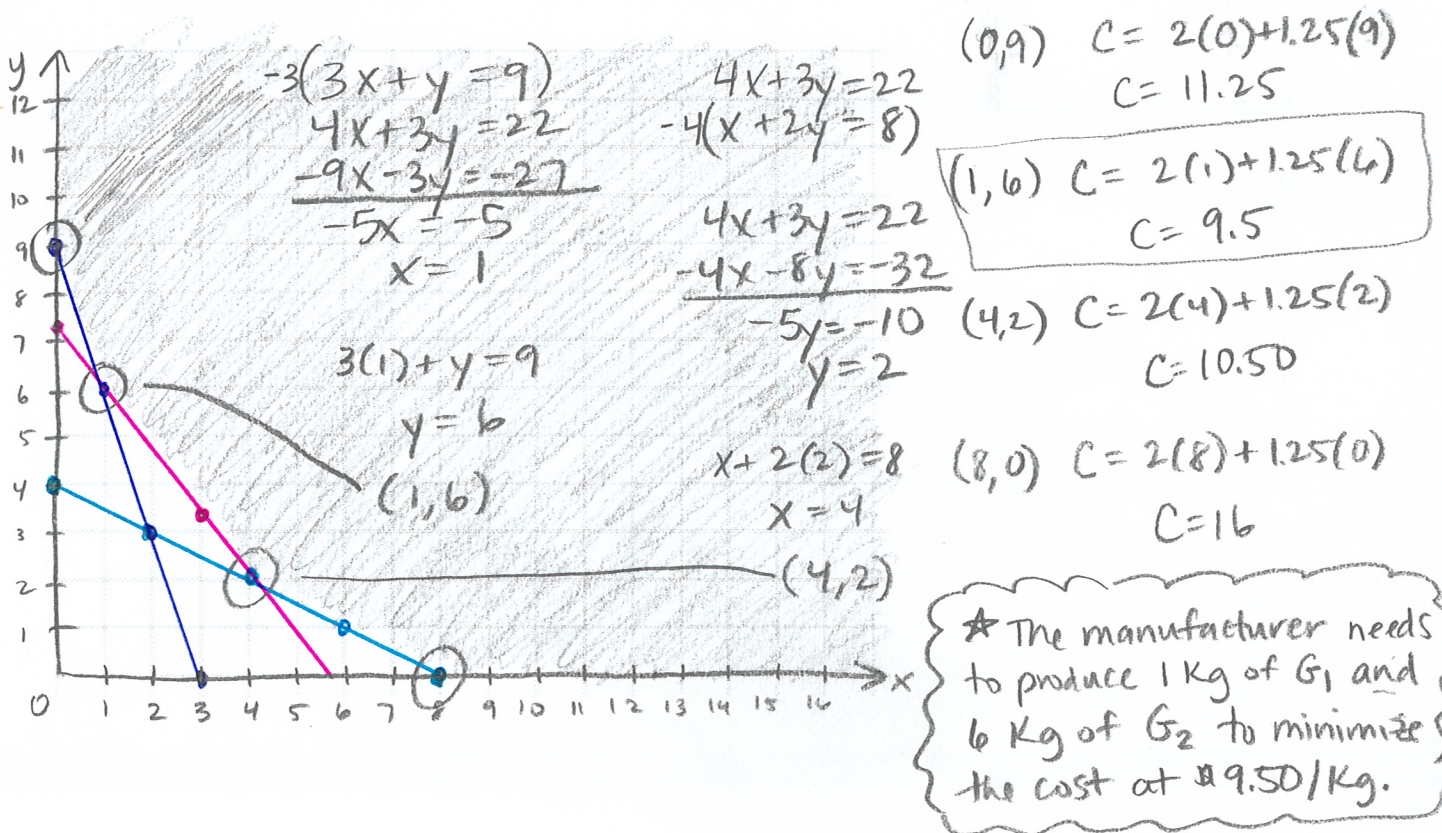 y
12
11
10
9
8
7
6
5
4
3
2
1
0 1 2 3 4 5 6 7 8 9 10 11 12 13 14 15 16
x
-3(3x+y=9)
4x+3y=22
-9x-3y=-27
-5x=-5
x=1
3(1)+y=9
y=6
(1,6)
4x+3y=22
-4(x+2y=8)
4x+3y=22
-4x-8y=-32
-5y=-10
y=2
x+2(2)=8
x=4
(4,2)
(0,9) C= 2(0)+1.25(9)
C= 11.25
(1,6) C= 2(1)+1.25(6)
C= 9.5
(4,2) C= 2(4)+1.25(2)
C=10.50
(8,0) C= 2(8)+1.25(0)
C=16
★ The manufacturer needs
to produce 1 Kg of G₁ and
6 Kg of G₂ to minimize
the cost at $9.50/Kg.